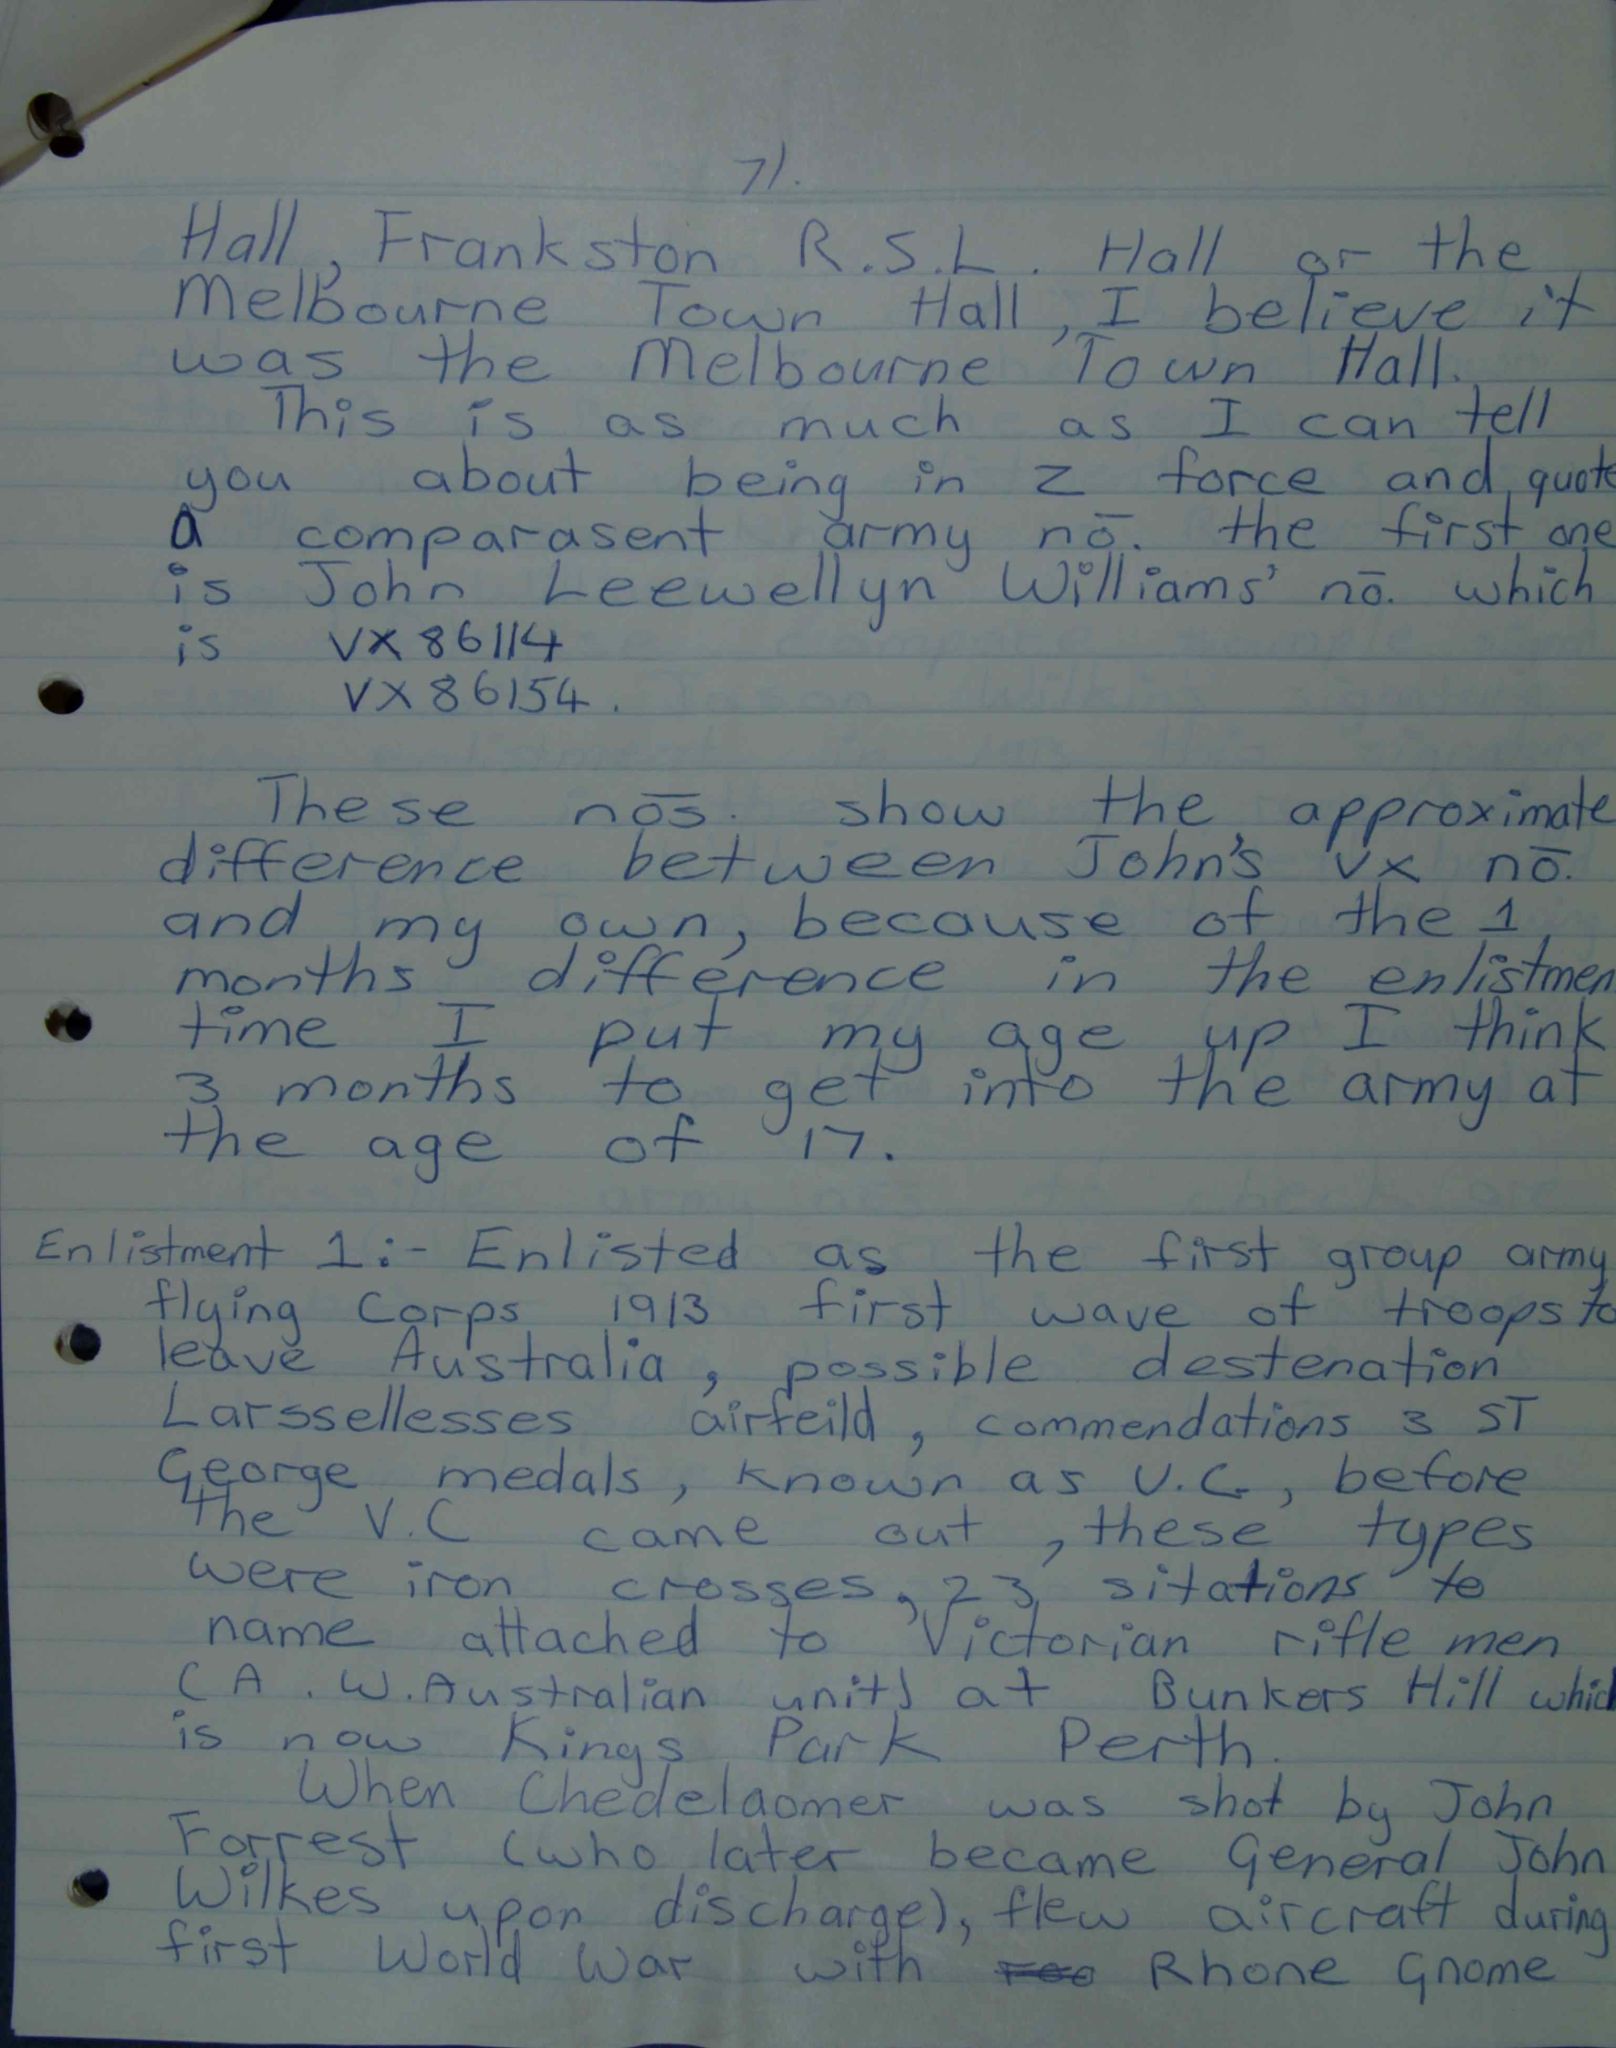 71.
Hall, Frankston R.S.L. Hall or the
Melbourne Town Hall, I believe it
was the Melbourne Town Hall.
This is as much as I can tell
you about being in Z force and quote
a comparasent army no. the first one
is John Leewellyn Williams' no. which
is VX86114
VX86154.
These nos. show the approximate
difference between John's VX no.
and my own, because of the 1
months difference in the enlistmen
time I put my age up I think
3 months to get into the army at
the age of 17.
Enlistment 1:- Enlisted as the first group army
flying Corps 1913 first wave of troops to
leave Australia, possible destenation
Larssellesses airfeild, commendations 3 ST
George medals, known as V.C., before
the V.C came out, these types
were iron crosses, 23 sitations to
name attached to Victorian rifle men
(A.W. Australian unit) at Bunkers Hill which
is now Kings Park Perth.
When Chedelaomer was shot by John
Forrest (who later became General John
Wilkes upon discharge), flew aircraft during
first World War with Rhone Gnome